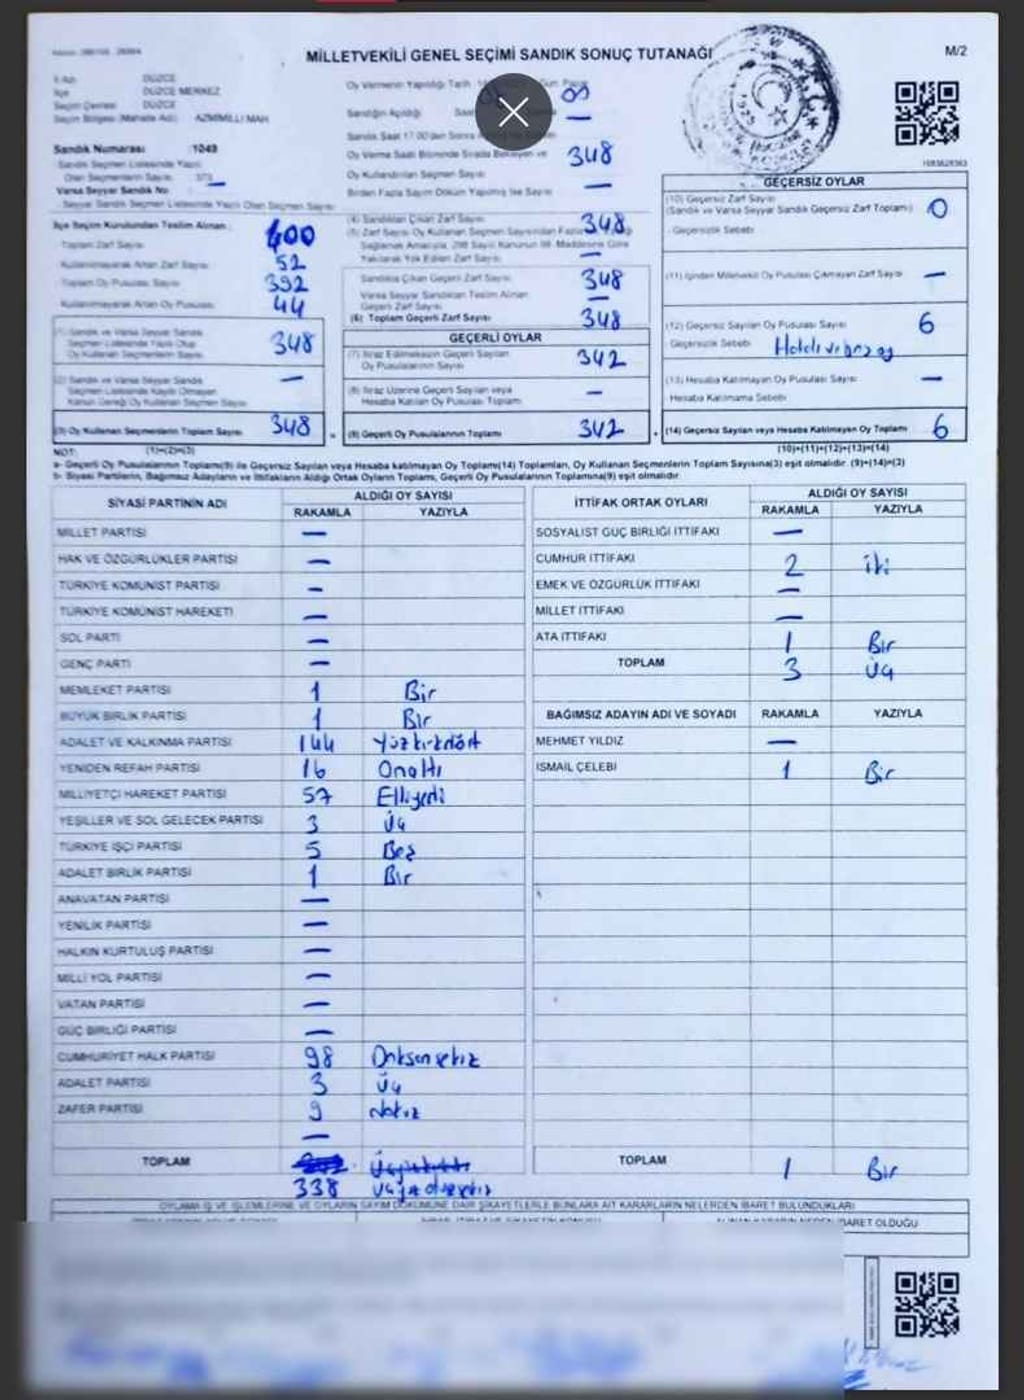 MİLLETVEKİLİ GENEL SEÇİMİ SANDIK SONUÇ TUTANAĞI
M/2
İli Adı DÜZCE
İlçe DÜZCE MERKEZ
Seçim Çevresi DÜZCE
Seçim Bölgesi (Mahalle Adı) AZMİMİLLİ MAH
Sandık Numarası :1049
Sandık Seçmen Listesinde Yazılı
Olan Seçmenlerin Sayısı 373
Varsa Seyyar Sandık No —
Seyyar Sandık Seçmen Listesinde Yazılı Olan Seçmen Sayısı
İlçe Seçim Kurulundan Teslim Alınan;
Toplam Zarf Sayısı 400
Kullanılmayarak Artan Zarf Sayısı 52
Toplam Oy Pusulası Sayısı 392
Kullanılmayarak Artan Oy Pusulası 44
(1) Sandık ve Varsa Seyyar Sandık
Seçmen Listesinde Yazılı Olup
Oy Kullanan Seçmenlerin Sayısı 348
(2) Sandık ve Varsa Seyyar Sandık
Seçmen Listesinde Kayıtlı Olmayan
Kanun Gereği Oy Kullanan Seçmen Sayısı —
(3) Oy Kullanan Seçmenlerin Toplam Sayısı 348
(1)+(2)=(3)
Oy Vermenin Yapıldığı Tarih
Sandığın Açıldığı Saat
Sandık Saat 17.00'den Sonra
Oy Verme Saati Bitiminde Sırada Bekleyen ve
Oy Kullandırılan Seçmen Sayısı 348
Birden Fazla Sayım Döküm Yapılmış İse Sayısı —
(4) Sandıktan Çıkan Zarf Sayısı 348
(5) Zarf Sayısı Oy Kullanan Seçmen Sayısından Fazla
Sağlamak Amacıyla, 298 Sayılı Kanunun 98. Maddesine Göre
Yakılarak Yok Edilen Zarf Sayısı —
Sandıkta Çıkan Geçerli Zarf Sayısı 348
Varsa Seyyar Sandıktan Teslim Alınan
Geçerli Zarf Sayısı —
(6) Toplam Geçerli Zarf Sayısı 348
GEÇERLİ OYLAR
(7) İtiraz Edilmeksizin Geçerli Sayılan
Oy Pusulalarının Sayısı 342
(8) İtiraz Üzerine Geçerli Sayılan veya
Hesaba Katılan Oy Pusulası Toplamı —
(9) Geçerli Oy Pusulalarının Toplamı 342
GEÇERSİZ OYLAR
(10) Geçersiz Zarf Sayısı
(Sandık ve Varsa Seyyar Sandık Geçersiz Zarf Toplamı) 0
Geçersizlik Sebebi
(11) İçinden Milletvekili Oy Pusulası Çıkmayan Zarf Sayısı —
(12) Geçersiz Sayılan Oy Pusulası Sayısı 6
Geçersizlik Sebebi
(13) Hesaba Katılmayan Oy Pusulası Sayısı —
Hesaba Katılmama Sebebi
(14) Geçersiz Sayılan veya Hesaba Katılmayan Oy Toplamı 6
(10)+(11)+(12)+(13)=(14)
NOT:
a- Geçerli Oy Pusulalarının Toplamı(9) ile Geçersiz Sayılan veya Hesaba katılmayan Oy Toplamı(14) Toplamları, Oy Kullanan Seçmenlerin Toplam Sayısına(3) eşit olmalıdır. (9)+(14)=(3)
b- Siyasi Partilerin, Bağımsız Adayların ve İttifakların Aldığı Ortak Oyların Toplamı, Geçerli Oy Pusulalarının Toplamına(9) eşit olmalıdır
SİYASİ PARTİNİN ADI ALDIĞI OY SAYISI
RAKAMLA YAZIYLA
MİLLET PARTİSİ —
HAK VE ÖZGÜRLÜKLER PARTİSİ —
TÜRKİYE KOMÜNİST PARTİSİ —
TÜRKİYE KOMÜNİST HAREKETİ —
SOL PARTİ —
GENÇ PARTİ —
MEMLEKET PARTİSİ 1 Bir
BÜYÜK BİRLİK PARTİSİ 1 Bir
ADALET VE KALKINMA PARTİSİ 144 Yüzkırkdört
YENİDEN REFAH PARTİSİ 16 Onaltı
MİLLİYETÇİ HAREKET PARTİSİ 57 Elliyedi
YEŞİLLER VE SOL GELECEK PARTİSİ 3 Üç
TÜRKİYE İŞÇİ PARTİSİ 5 Beş
ADALET BİRLİK PARTİSİ 1 Bir
ANAVATAN PARTİSİ —
YENİLİK PARTİSİ —
HALKIN KURTULUŞ PARTİSİ —
MİLLİ YOL PARTİSİ —
VATAN PARTİSİ —
GÜÇ BİRLİĞİ PARTİSİ —
CUMHURİYET HALK PARTİSİ 98 Doksansekiz
ADALET PARTİSİ 3 Üç
ZAFER PARTİSİ 9 Dokuz
—
TOPLAM
338
İTTİFAK ORTAK OYLARI ALDIĞI OY SAYISI
RAKAMLA YAZIYLA
SOSYALİST GÜÇ BİRLİĞİ İTTİFAKI —
CUMHUR İTTİFAKI 2 iki
EMEK VE ÖZGÜRLÜK İTTİFAKI —
MİLLET İTTİFAKI —
ATA İTTİFAKI 1 Bir
TOPLAM 3 Üç
BAĞIMSIZ ADAYIN ADI VE SOYADI RAKAMLA YAZIYLA
MEHMET YILDIZ —
İSMAİL ÇELEBİ 1 Bir
TOPLAM 1 Bir
OYLAMA İŞ VE İŞLEMLERİNE VE OYLARIN SAYIM DÖKÜMÜNE DAİR ŞİKAYETLERLE BUNLARA AİT KARARLARIN NELERDEN İBARET BULUNDUKLARI